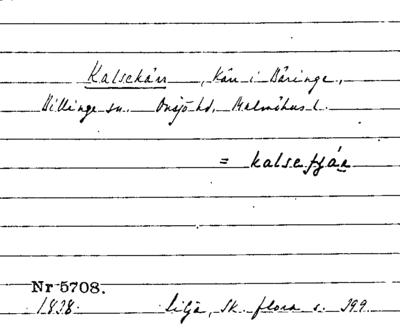 Kalsekärr, Kärr i Båringe,
Billinge sn. Onsjö hd, Malmöhus l.
= kalsetjär
Nr 5708.
1838. Lilja, Sk. flora s. 399